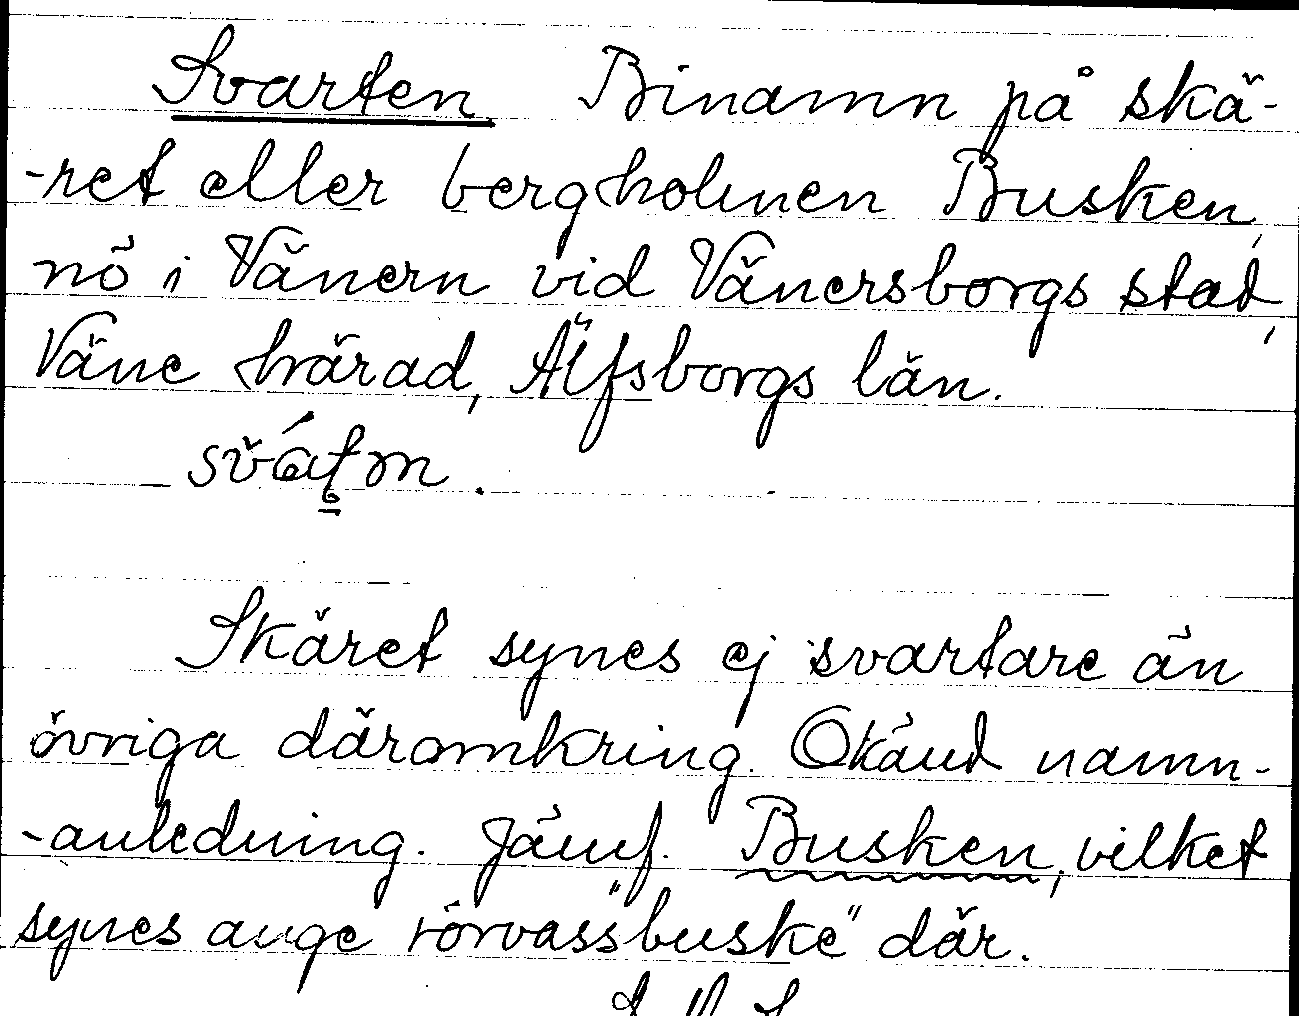 Svarten Binamn på skä-
-ret eller bergholmen Busken,
nö i Vänern vid Vänersborgs stad,
Väne härad, Älfsborgs län.
Skäret synes ej svartare än
övriga däromkring. Okänd namn-
-anledning. Jämf. Busken, vilket
synes ange rörvass"buske" där.